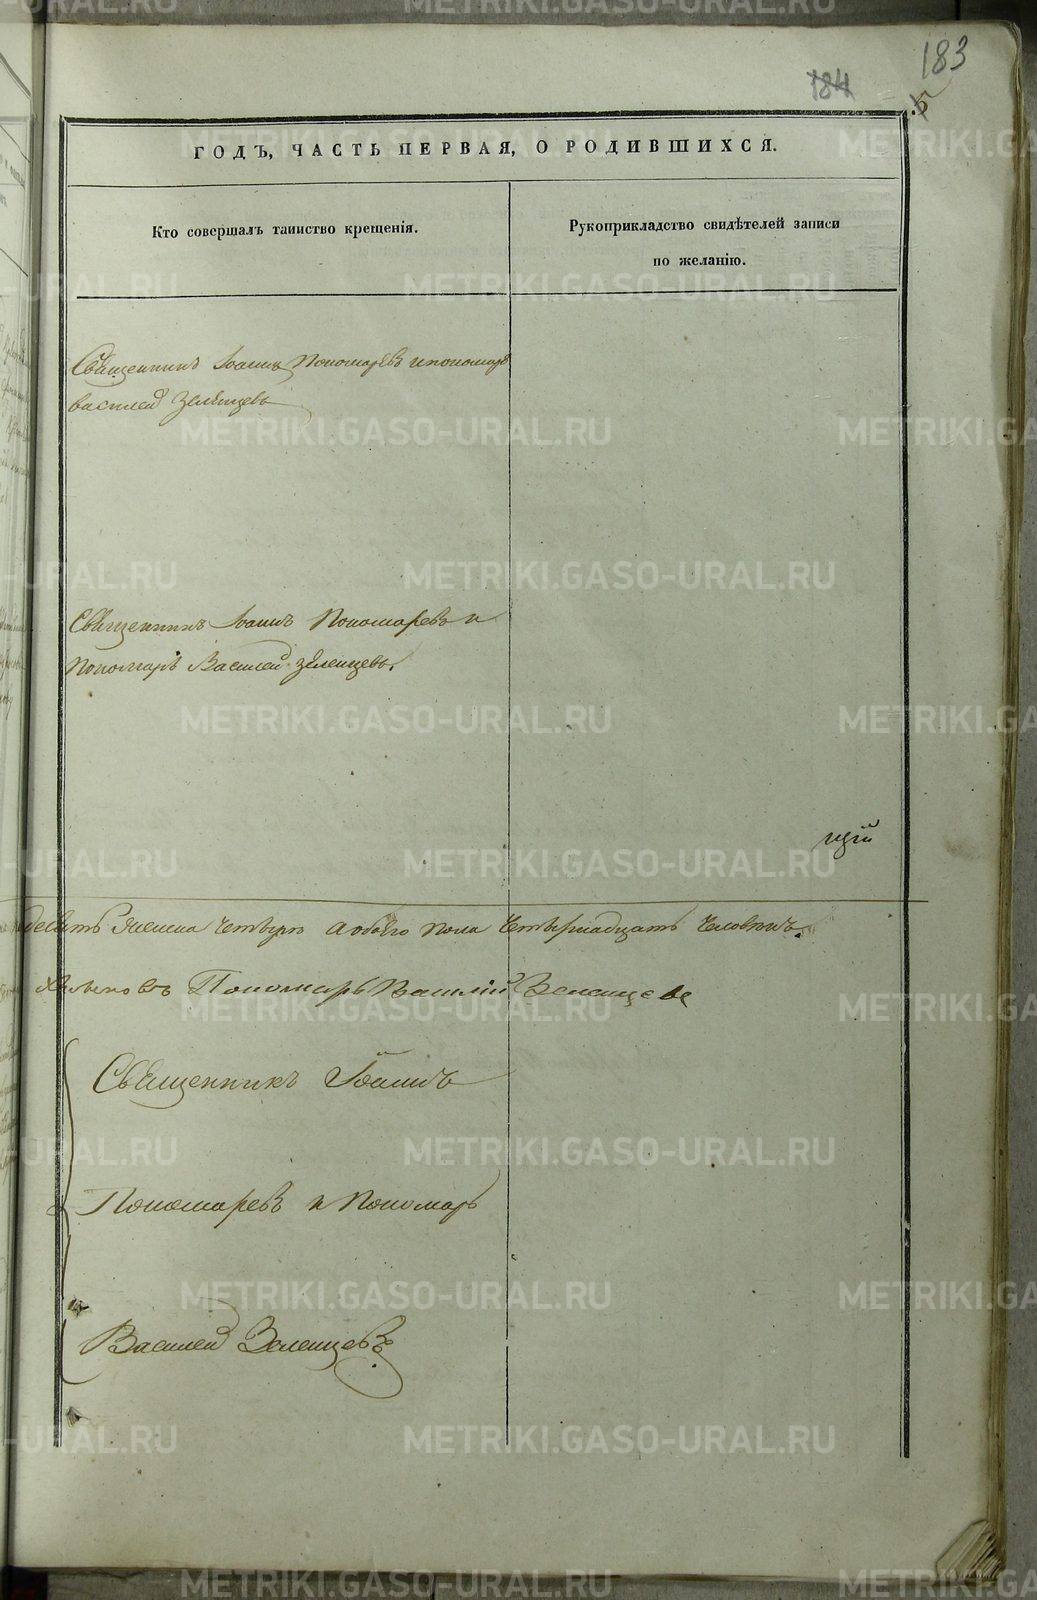 183
184
ГОДЪ, ЧАСТЬ ПЕРВАЯ, О РОДИВШИХСЯ.
Кто совершалъ таинство крещенія.
Рукоприкладство свидѣтелей записи
по желанію.
Священникъ Іоаннъ Пономаревъ и пономарь
василей Зеленцевъ
Священникъ Іоаннъ Пономаревъ и
пономарь Василей зеленцевъ.
щій
десять женска четыре а обоего пола четырнадцать человекъ.
Пономарь Василій Зеленцевъ
Священникъ Іоаннъ
Пономаревъ и Пономарь
Василей Зеленцевъ
METRIKI.GASO-URAL.RU